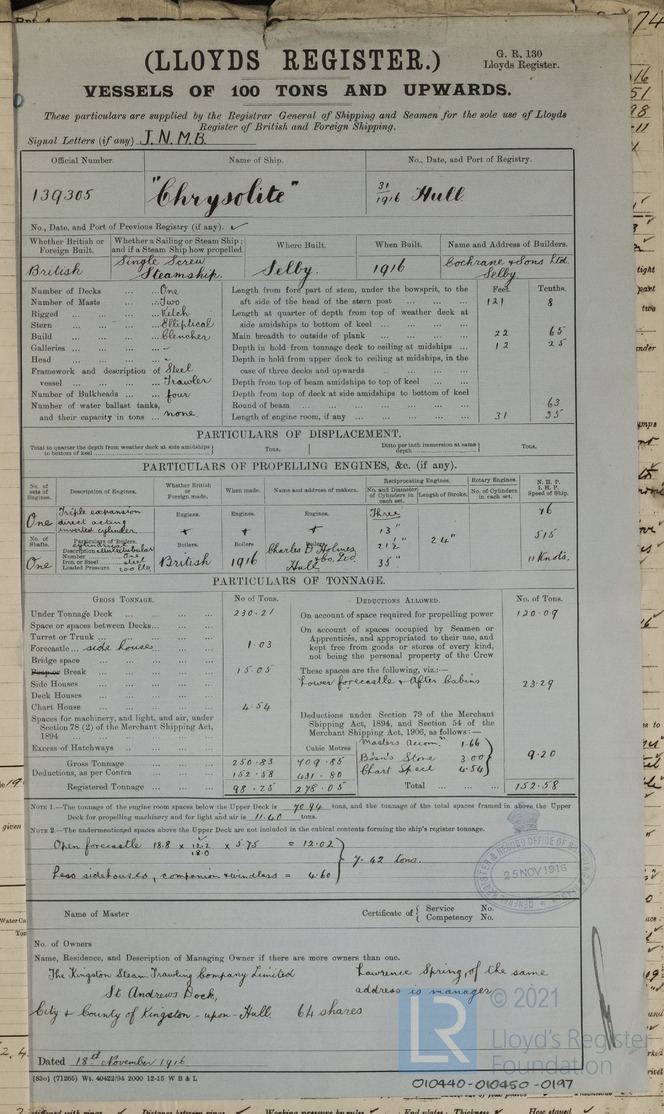 (LLOYDS REGISTER.)
G. R. 130
Lloyds Register.
VESSELS OF 100 TONS AND UPWARDS.
These particulars are supplied by the Registrar General of Shipping and Seamen for the sole use of Lloyds
Register of British and Foreign Shipping.
Signal Letters (if any) J.N.M.B.
Official Number. Name of Ship. No., Date, and Port of Registry.
139305 "Chrysolite" 31/1916 Hull
No., Date, and Port of Previous Registry (if any).
Whether British or Foreign Built. Whether a Sailing or Steam Ship; and if a Steam Ship how propelled. Where Built. When Built. Name and Address of Builders.
British Single Screw Steamship. Selby. 1916 Cochrane & Sons Ltd. Selby
Number of Decks ... One
Number of Masts ... Two
Rigged ... Ketch
Stern ... Elliptical
Build ... Clencher
Galleries ... -
Head ... -
Framework and description of vessel ... Steel Trawler
Number of Bulkheads ... four
Number of water ballast tanks, and their capacity in tons ... none
Feet. Tenths.
Length from fore part of stem, under the bowsprit, to the
aft side of the head of the stern post ... 121 8
Length at quarter of depth from top of weather deck at
side amidships to bottom of keel ...
Main breadth to outside of plank ... 22 65
Depth in hold from tonnage deck to ceiling at midships ... 12 25
Depth in hold from upper deck to ceiling at midships, in the
case of three decks and upwards ...
Depth from top of beam amidships to top of keel ...
Depth from top of deck at side amidships to bottom of keel
Round of beam ... 63
Length of engine room, if any ... 31 35
PARTICULARS OF DISPLACEMENT.
Total to quarter the depth from weather deck at side amidships to bottom of keel ... Tons. Ditto per inch immersion at same depth ... Tons.
PARTICULARS OF PROPELLING ENGINES, &c. (if any).
No. of sets of Engines. Description of Engines. Whether British or Foreign made. When made. Name and address of makers. Reciprocating Engines. Rotary Engines. N. H. P. I. H. P. Speed of Ship.
No. and Diameter of Cylinders in each set. Length of Stroke. No. of Cylinders in each set.
One Triple expansion direct acting inverted cylinder. Engines. Engines. Engines. Three 13" 21½" 35" 24" 76
No. of Shafts. Particulars of Boilers. Boilers. Boilers. Boilers. 515
Description
Number One
Iron or Steel steel
Loaded Pressure 200 lbs.
One British 1916 Charles D Holmes & Co. Ltd. Hull 11 Knots.
PARTICULARS OF TONNAGE.
GROSS TONNAGE. No of Tons. DEDUCTIONS ALLOWED. No. of Tons.
Under Tonnage Deck ... 230.21
Space or spaces between Decks ...
Turret or Trunk ...
Forecastle ... side house ... 1.03
Bridge space ...
Break ... 15.05
Side Houses ...
Deck Houses ...
Chart House ... 4.54
Spaces for machinery, and light, and air, under
Section 78 (2) of the Merchant Shipping Act,
1894 ...
Excess of Hatchways ... Cubic Metres
Gross Tonnage ... 250.83 709.85
Deductions, as per Contra ... 152.58 431.80
Registered Tonnage ... 98.25 278.05
On account of space required for propelling power 120.09
On account of spaces occupied by Seamen or
Apprentices, and appropriated to their use, and
kept free from goods or stores of every kind,
not being the personal property of the Crew
These spaces are the following, viz.:—
Lower forecastle & After Cabins 23.29
Deductions under Section 79 of the Merchant
Shipping Act, 1894, and Section 54 of the
Merchant Shipping Act, 1906, as follows:—
Masters Accom. 1.66
Bosn's Store 3.00
Chart Space 4.54
9.20
Total ... 152.58
NOTE 1.—The tonnage of the engine room spaces below the Upper Deck is 70.94 tons, and the tonnage of the total spaces framed in above the Upper
Deck for propelling machinery and for light and air is 11.40 tons.
NOTE 2.—The undermentioned spaces above the Upper Deck are not included in the cubical contents forming the ship's register tonnage.
Open forecastle 18.8 x 12.2/18.0 x 5.75 = 12.02
7.42 tons.
Less sidehouses, companion & windlass = 4.60
25 NOV 1916
Name of Master Certificate of { Service No. Competency No.
No. of Owners
Name, Residence, and Description of Managing Owner if there are more owners than one.
The Kingston Steam Trawling Company Limited
St Andrews Dock,
City & County of Kingston-upon-Hull. 64 shares
Lawrence Spring, of the same
address is manager
Dated 18th November 1916
(83o) (71265) Wt. 40422/94 2000 12-15 W B & L
LR
© 2021
Lloyd's Register
Foundation
010440-010450-0197